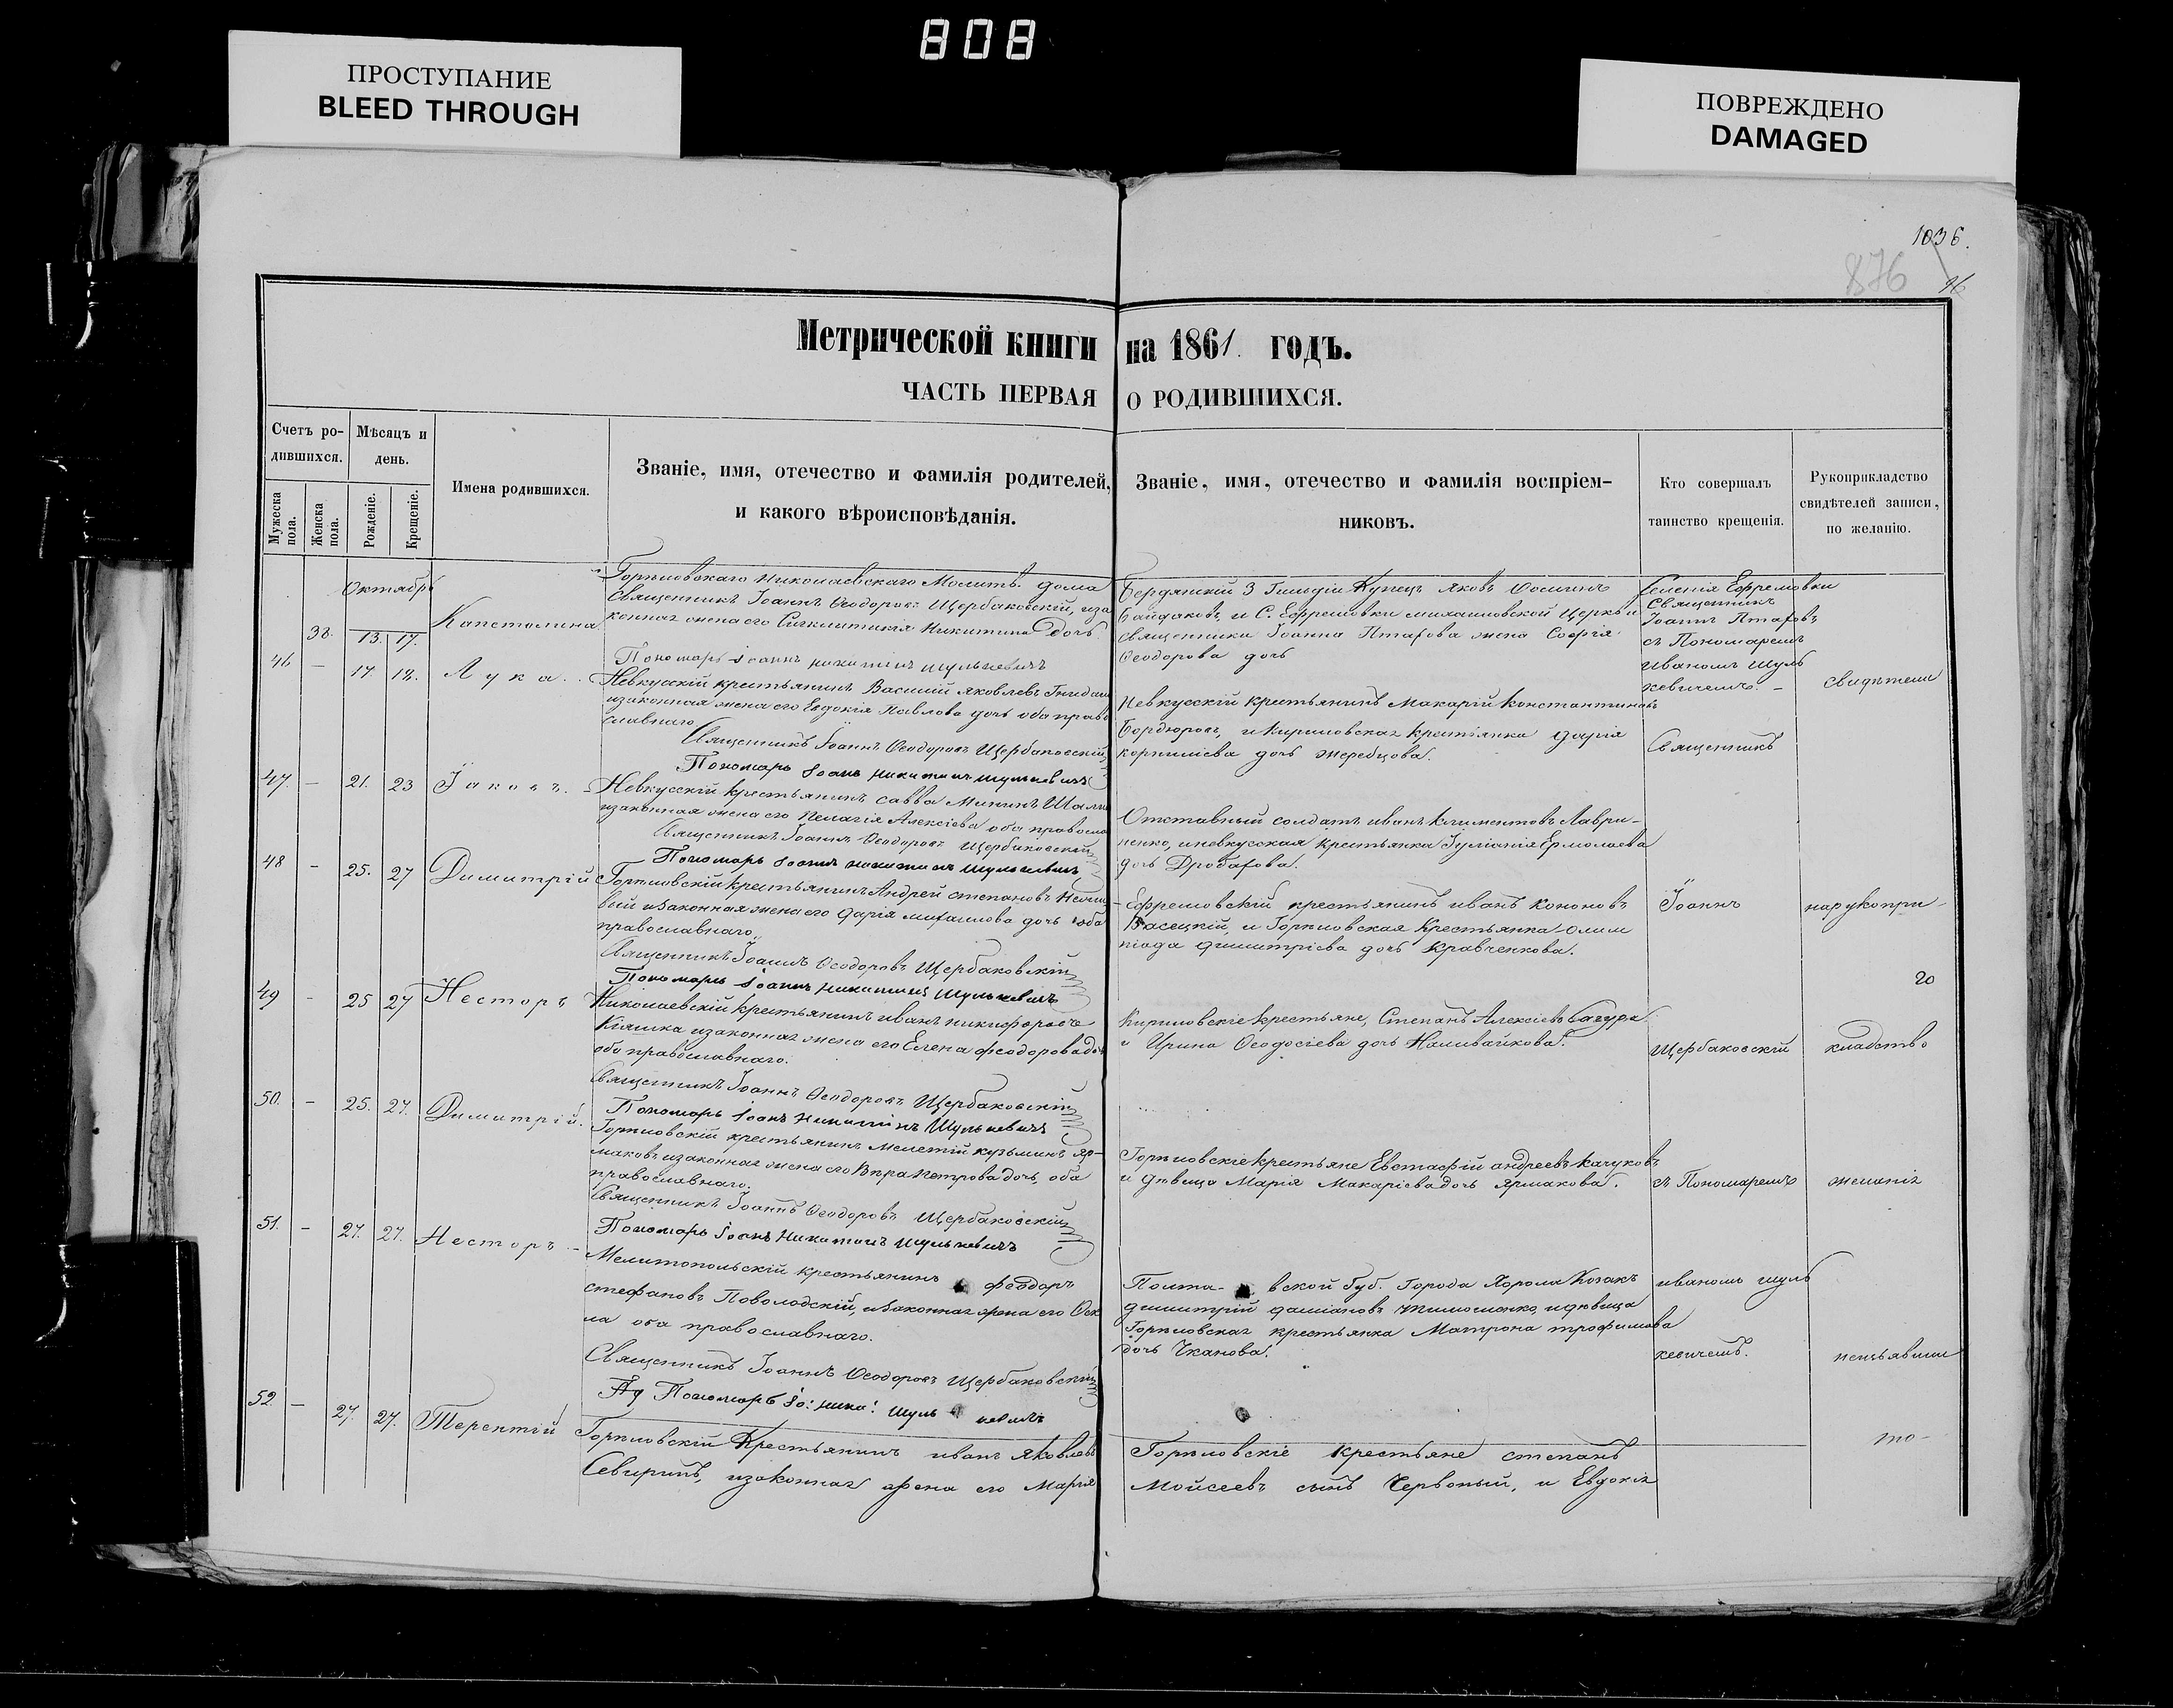 808
ПРОСТУПАНИЕ
BLEED THROUGH
ПОВРЕЖДЕНО
DAMAGED
1036.
876
Метрической книги на 1861. годъ.
ЧАСТЬ ПЕРВАЯ О РОДИВШИХСЯ.
Счетъ ро-
дившихся.
Мужеска
пола.
Женска
пола.
Мѣсяцъ и
день.
Рожденіе.
Крещеніе.
Имена родившихся.
Званіе, имя, отечество и фамилія родителей,
и какого вѣроисповѣданія.
Званіе, имя, отечество и фамилія воспріем-
никовъ.
Кто совершалъ
таинство крещенія.
Рукоприкладство
свидѣтелей записи,
по желанію.
Октябрь
38. 13. 17.
Капетолина
Горѣловскаго Николаевскаго Молитв. дома
Священникъ Іоаннъ Ѳеодоровъ Щербаковскій, иза
конная жена его Сигклитикія Никитина дочь.
Пономарь Іоаннъ Никитинъ Шулькевичъ
Бердянскій 3 Гильдіи Купецъ Яковъ
Байдаковъ, и С. Ефремовки михайловской Церкви
священника Іоанна Птахова жена Софія
Ѳеодорова дочь
Селенія Ефремовки
Священникъ
Іоаннъ Птаховъ
съ Пономаремъ
Иваномъ Шуль
кевичемъ. –
46 – 17 18. Лука.
Невкусскій крестьянинъ Василій Яковлевъ
изаконная жена его Евдокія Павлова дочь оба право
славнаго
Священникъ Іоаннъ Ѳеодоровъ Щербаковскій
Пономарь Іоанъ Никитинъ Шулькевичъ
Невкусскій крестьянинъ Макарій Константиновъ
Бордюговъ, и Кириловская крестьянка Дарія
Корниліева дочь Жеребцова.
Священникъ
свидѣтели
47. – 21. 23 Іаковъ.
Невкусскій крестьянинъ Савва Мининъ
изаконная жена его Пелагія Алексіева оба правосла
Священникъ Іоаннъ Ѳеодоровъ Щербаковскій
Пономарь Іоаннъ Никитинъ Шулькевичъ
Отставный солдатъ Иванъ Климентовъ Лаври-
ненко, и невкусская крестьянка Іуліанія Ермолаева
дочь Дробахова.
48 – 25. 27 Димитрій
Горѣловскій крестьянинъ Андрей Степановъ
изаконная жена его Дарія Михайлова дочь оба
православнаго.
Священникъ Іоаннъ Ѳеодоровъ Щербаковскій
Пономарь Іоаннъ Никитинъ Шулькевичъ
Ефремовскій крестьянинъ Иванъ Кононовъ
Васецкій, и Горѣловская Крестьянка Олим
піада Димитріева дочь Кравченкова.
Іоаннъ
нарукопри-
49 – 25 27 Несторъ
Николаевскій крестьянинъ Иванъ Никифоровъ
Кіяшка изаконная жена его Елена Феодорова дочь
оба православнаго.
Священникъ Іоаннъ Ѳеодоровъ Щербаковскій
Пономарь Іоанъ Никитинъ Шулькевичъ
Кириловскіе крестьяне, Степанъ Алексіевъ
и Ирина Ѳеодосіева дочь Наливайкова.
Щербаковскій
кладство
50. – 25. 27. Димитрій.
Горѣловскій крестьянинъ Мелетій Кузьминъ Яр-
маковъ изаконная жена его Вѣра Петрова дочь, оба
православнаго.
Священникъ Іоаннъ Ѳеодоровъ Щербаковскій
Пономарь Іоанъ Никитинъ Шулькевичъ
Горѣловскіе крестьяне Евстафій Андреевъ Качуковъ
и дѣвица Марія Макаріева дочь Ярмакова.
съ Пономаремъ
желанія
51. – 27. 27. Несторъ –
Мелитопольскій крестьянинъ Феодоръ
Стефановъ Поволодскій, изаконная жена его
ла оба православнаго.
Священникъ Іоаннъ Ѳеодоровъ Щербаковскій
Пономарь Іо: Ники: Шулькевичъ
Полта- вской Губ. Города Хорола Козакъ
Димитрій Даміановъ и дѣвица
Горѣловская крестьянка Матрона Трофимова
дочь Чканова.
Иваномъ Шуль
кевичемъ.
неизъявили
52 – 27. 27. Терентій
Горѣловскій Крестьянинъ Иванъ Яковлевъ
Севиринъ, изаконная жена его Марія
Горѣловскіе крестьяне Степанъ
Мойсеевъ сынъ Червоный, и Евдокія